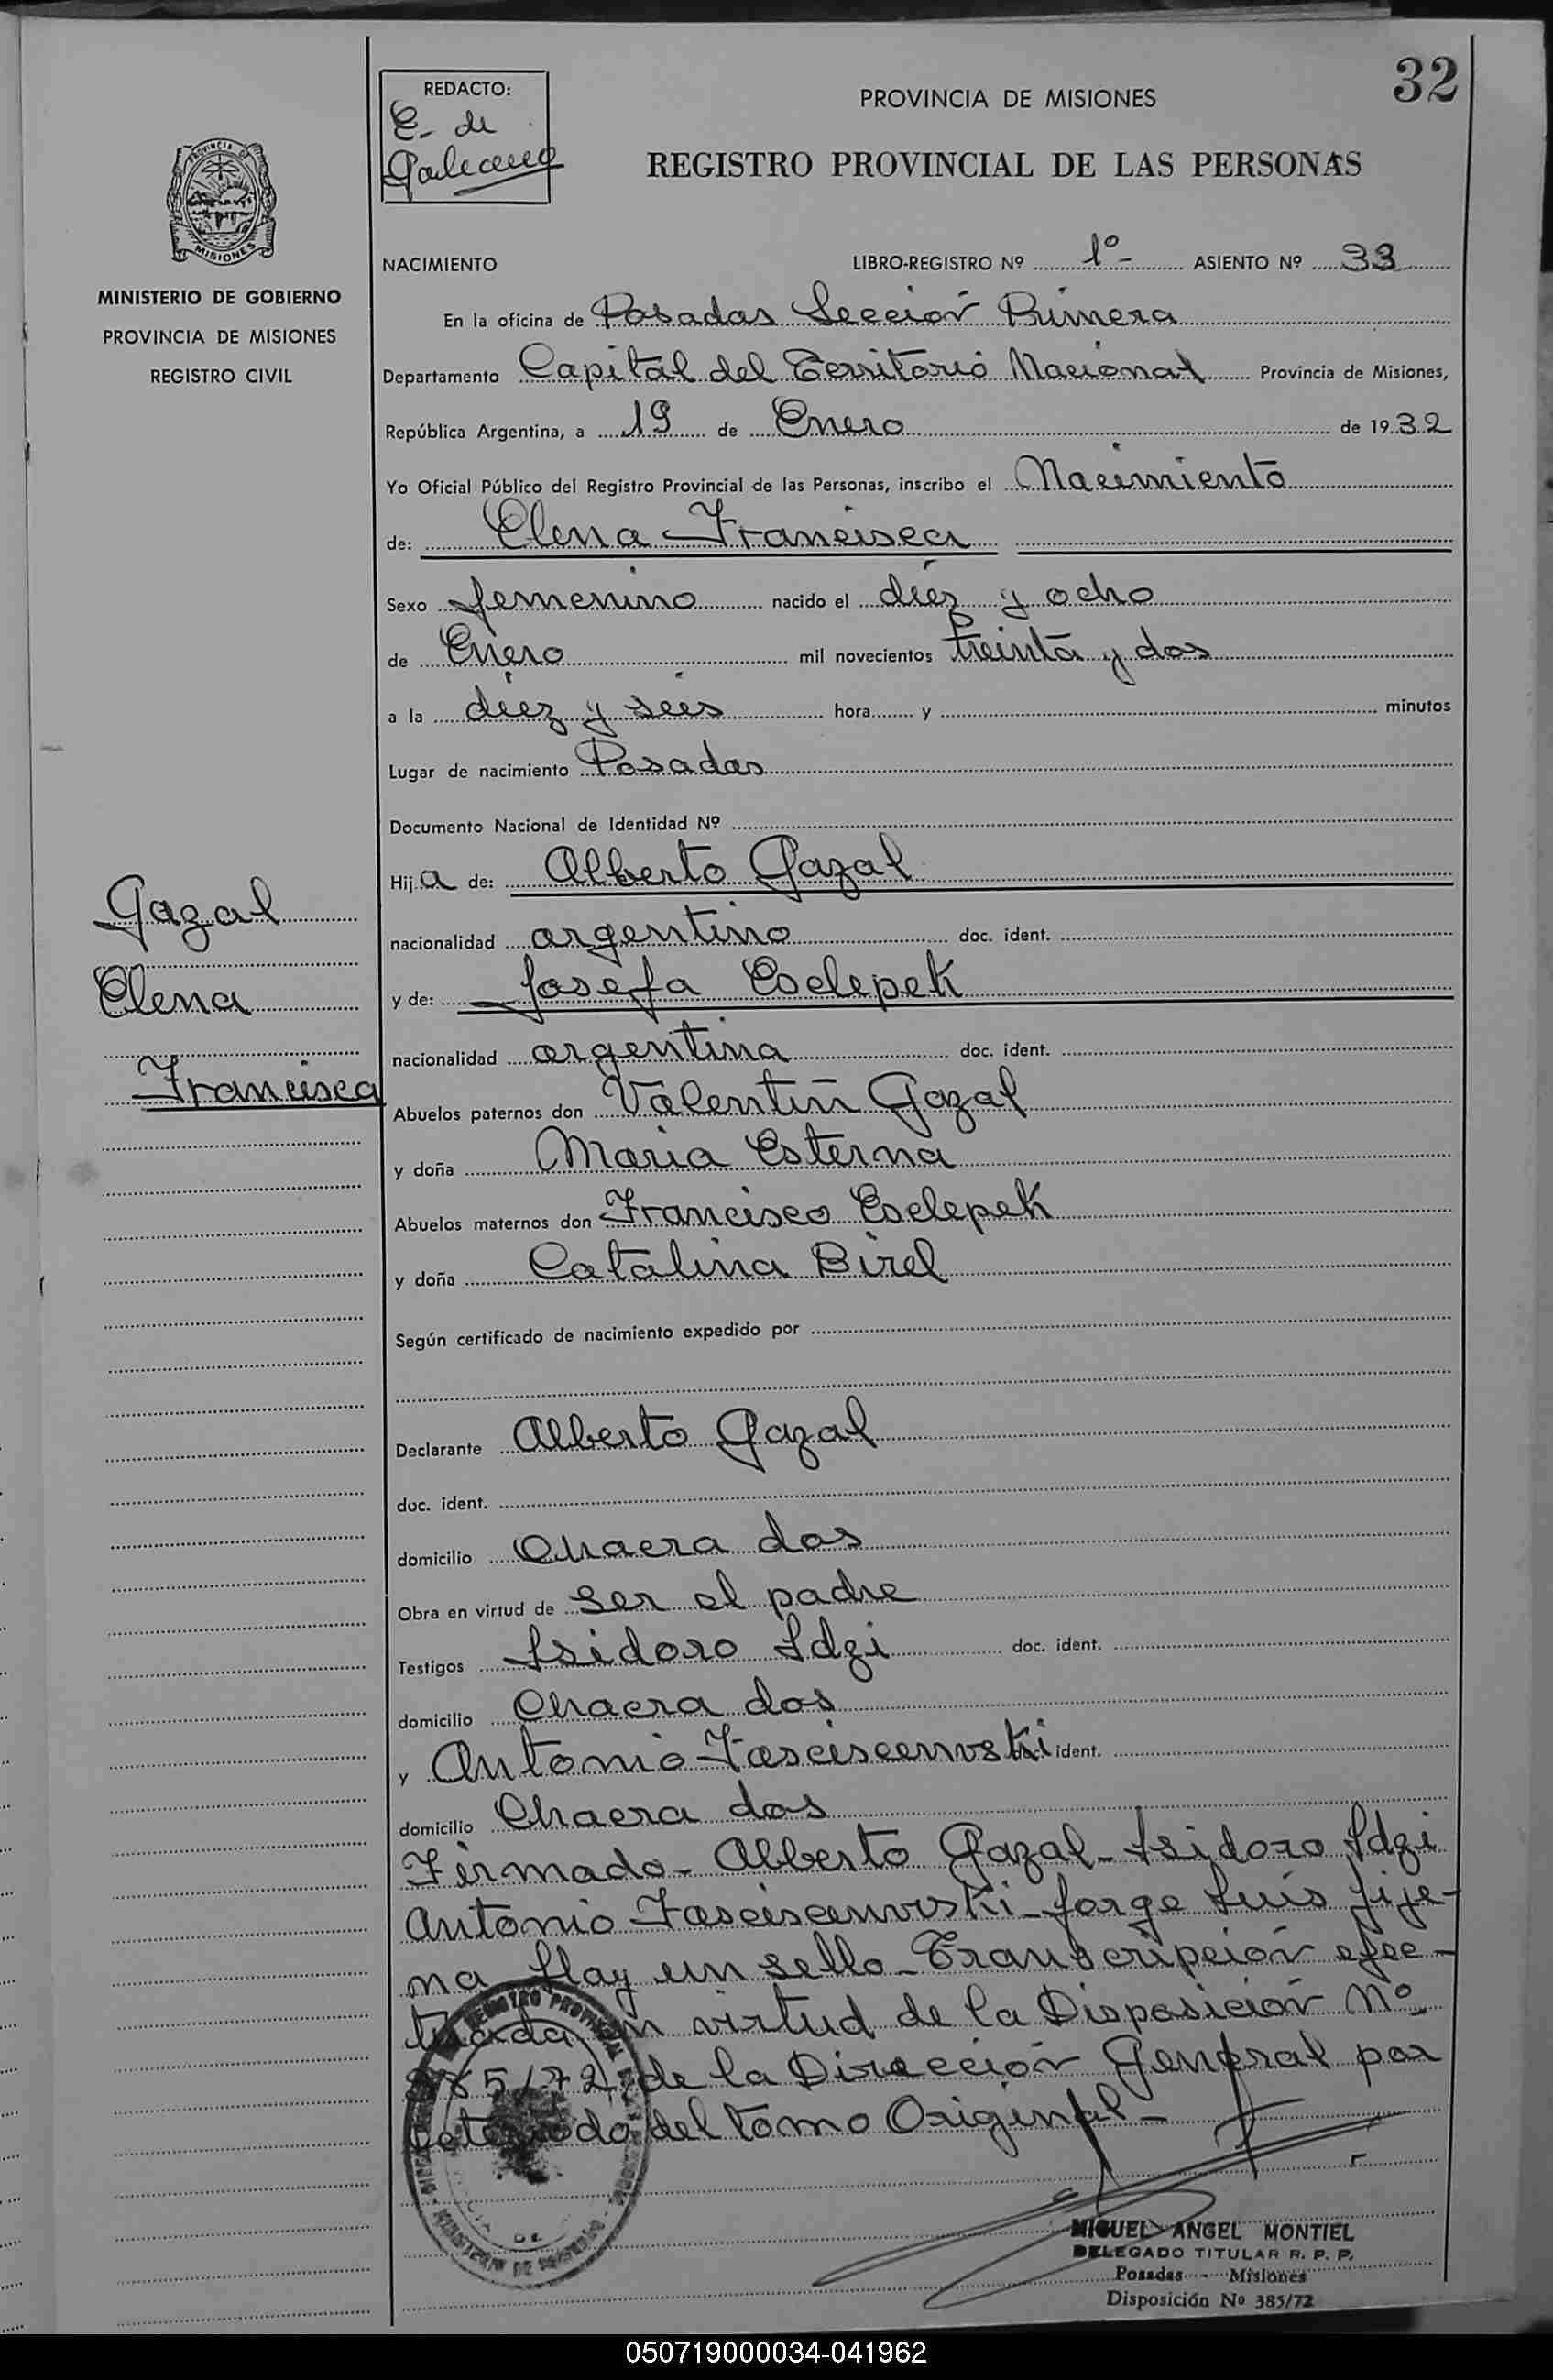 32
REDACTO:
E. de
Galeano
PROVINCIA DE MISIONES
REGISTRO PROVINCIAL DE LAS PERSONAS
PROVINCIA DE
MISIONES
MINISTERIO DE GOBIERNO
PROVINCIA DE MISIONES
REGISTRO CIVIL
NACIMIENTO LIBRO-REGISTRO Nº 1º- ASIENTO Nº 33
En la oficina de Posadas Sección Primera
Departamento Capital del Territorio Nacional Provincia de Misiones,
República Argentina, a 19 de Enero de 1932
Yo Oficial Público del Registro Provincial de las Personas, inscribo el Nacimiento
de: Elena Francisca
Sexo femenino nacido el diéz y ocho
de Enero mil novecientos treinta y dos
a la diez y seis hora y minutos
Lugar de nacimiento Posadas
Documento Nacional de Identidad Nº
Hija de: Alberto Gazal
nacionalidad argentino doc. ident.
y de: Josefa Esclepek
nacionalidad argentina doc. ident.
Abuelos paternos don Valentin Gazal
y doña Maria Esterna
Abuelos maternos don Francisco Esclepek
y doña Catalina Birel
Según certificado de nacimiento expedido por
Declarante Alberto Gazal
doc. ident.
domicilio Chacra dos
Obra en virtud de ser el padre
Testigos Isidoro Idzi doc. ident.
domicilio Chacra dos
y Antonio ident.
domicilio Chacra dos
Firmado- Alberto Gazal- Isidoro Idzi
Antonio Jorge Luis Jije-
na Hay un sello- Transcripción efec-
tuada en virtud de la Disposición Nº
385/72, de la Dirección General por
deterioro del tomo Original-
Gazal
Elena
Francisca
MIGUEL ANGEL MONTIEL
DELEGADO TITULAR R. P. P.
Posadas - Misiones
Disposición Nº 385/72
050719000034-041962